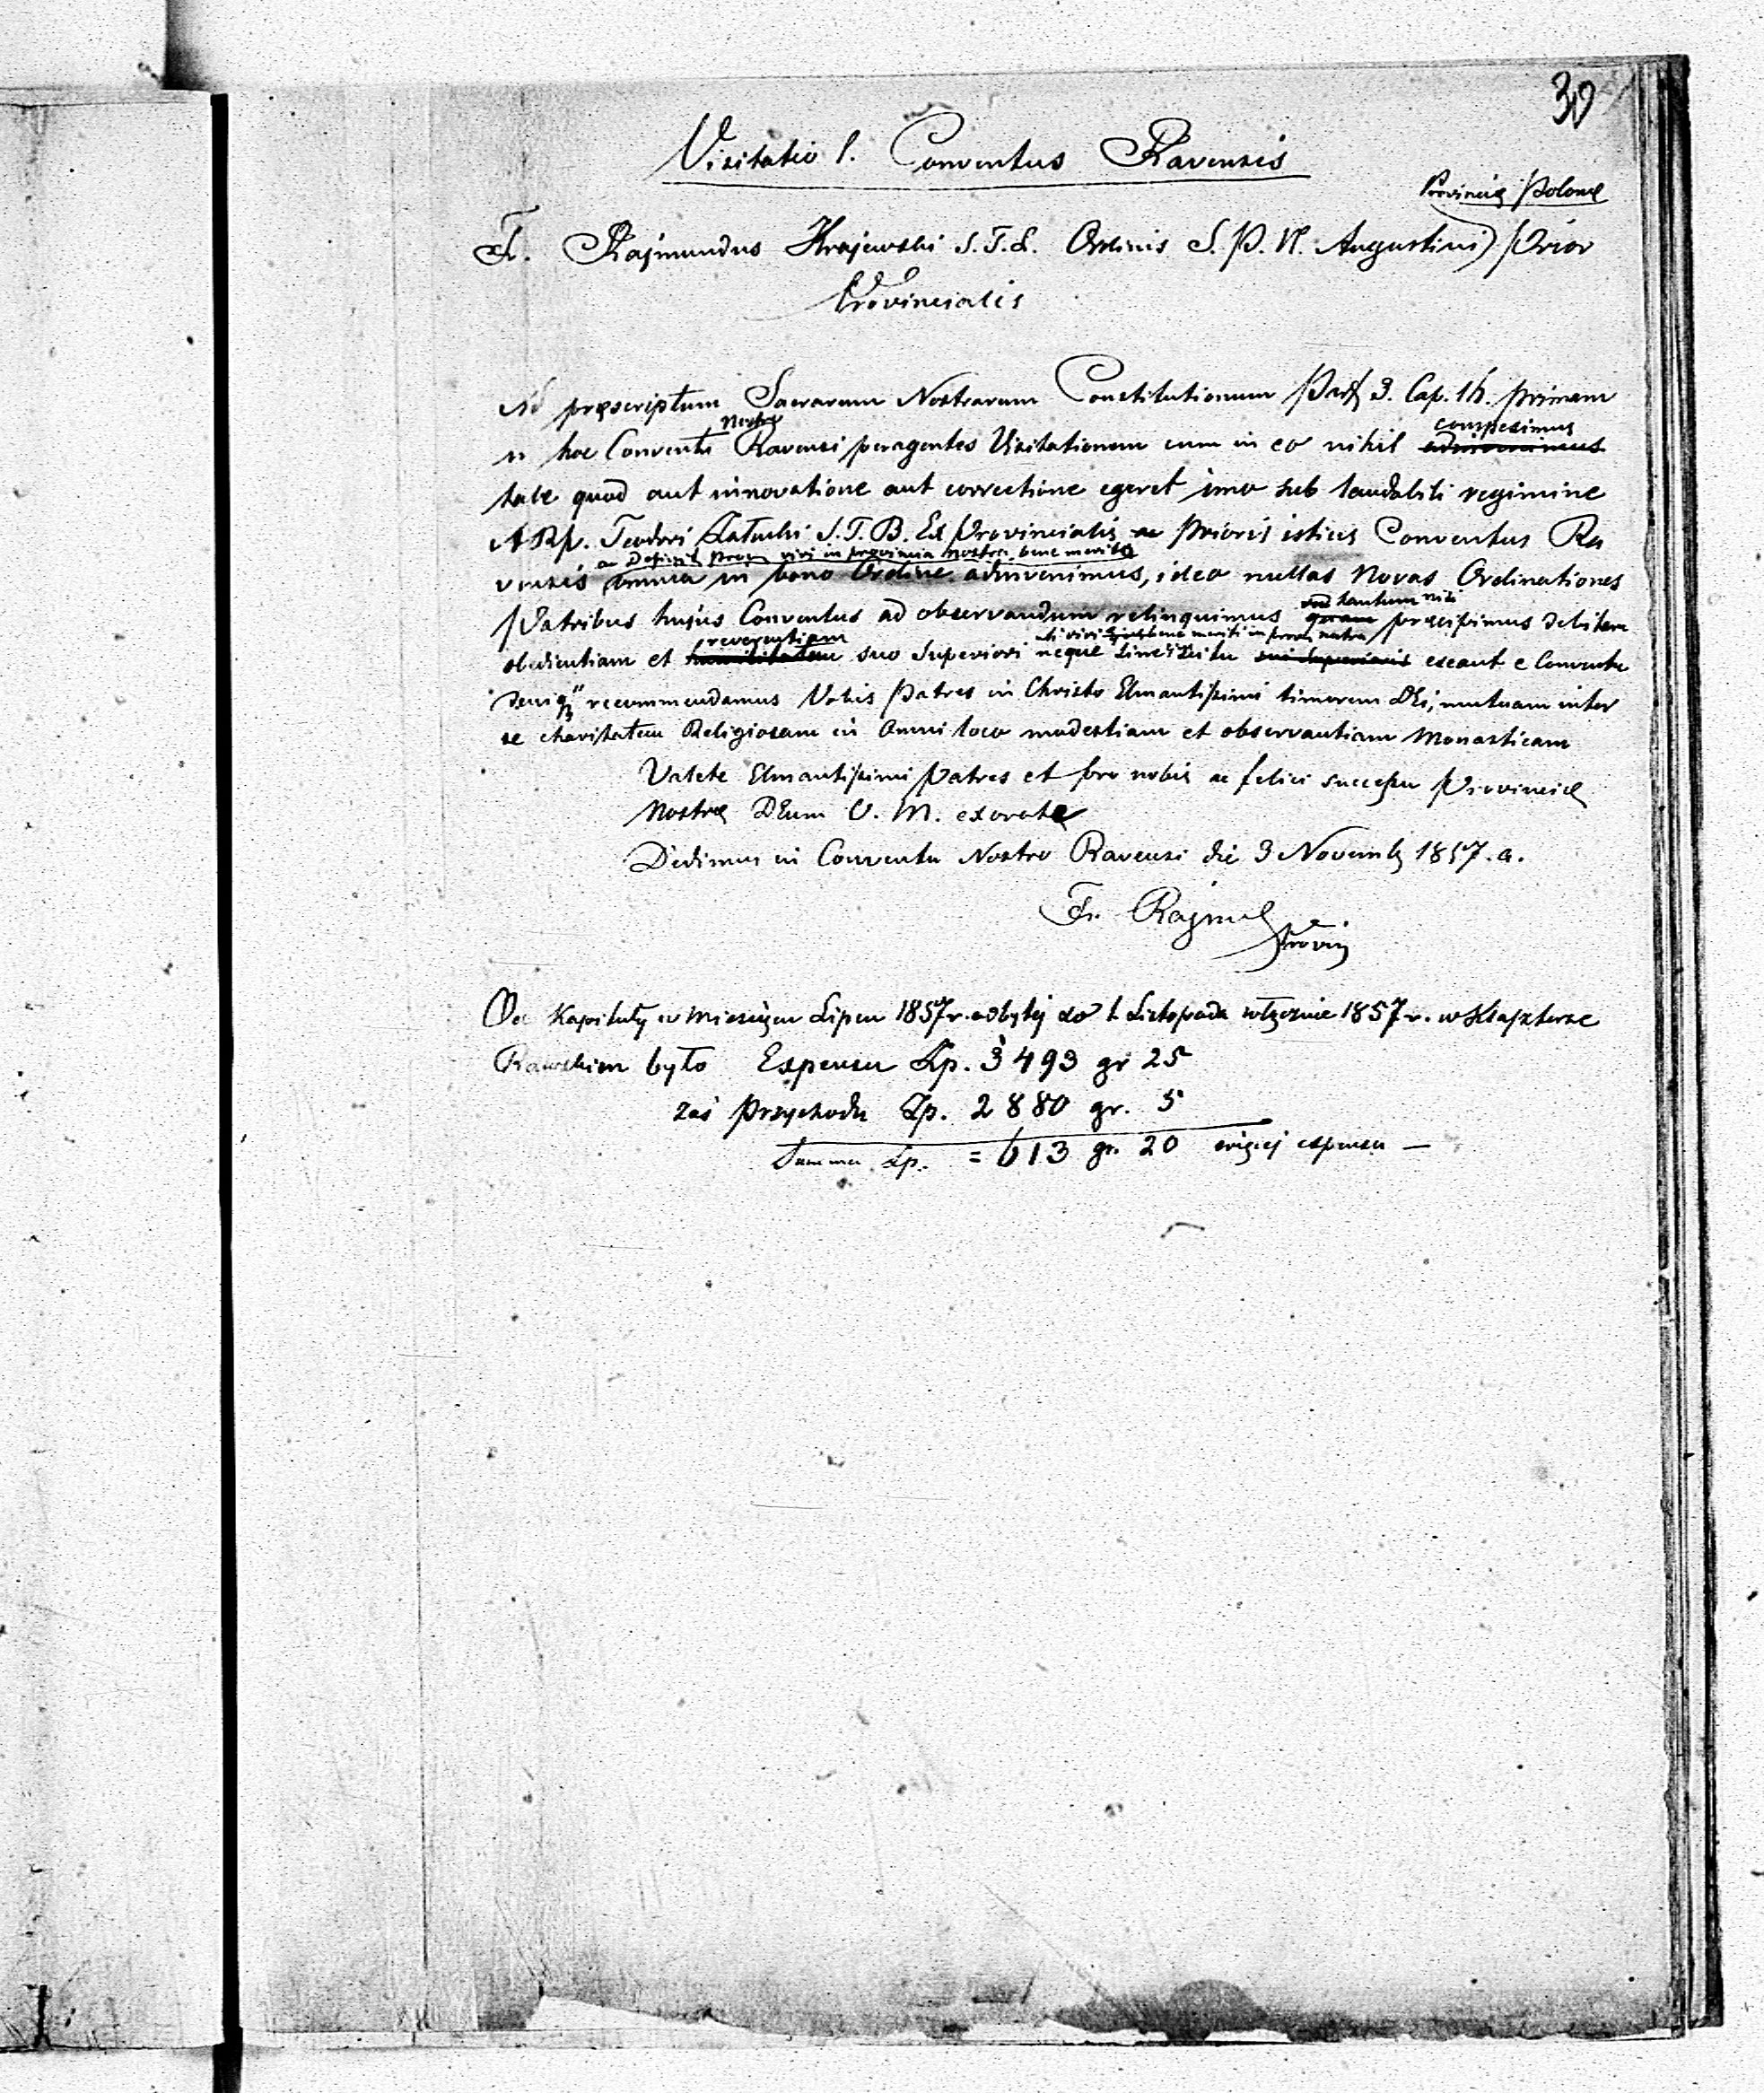 30
Visitatio 1. Conventus Ravensis
Provinciæ Polonæ
Fr. Rajmundus Krajewski S.T.L. Ordinis S.P.N. Augustini Prior
Provincialis
Ad præscriptum Sacrarum Nostrarum Constitutionum Part 3. Cap. 1h. primam
Nostro conspeximus
in hoc Conventu Ravensi peragentes Visitationem cum in eo nihil adinvenimus
tale quod aut innovatione aut correctione egeret imo sub laudabili regimine
ARp. Teodori S.T.B. Ex Provincialis ac Prioris istius Conventus Ra
ac Definit. Prov. viri in provincia nostra bene meriti
vensis omnia in bono Ordine adinvenimus, ideo nullas Novas Ordinationes
tantum nisi
Patribus hujus Conventus ad observandum relinquimus quam præcipimus debitam
reverentiam uti viri bene meriti in prov. nostra
obedientiam et humilitatem suo Superiori neque sine scitu sui Superioris exeant e Conventu
deniq recommendamus Vobis Patres in Christo Elmantissimi timorem DEi, mutuam inter
se charitatem Religiosam in Omni loco modestiam et observantiam Monasticam
Valete Elmantissimi Patres et pro nobis ac felici successu Provinciæ
Nostræ DEum O. M. exorate
Dedimus in Conventu Nostro Ravensi die 3 Novemb 1857. a.
Fr. Rajmud
Provin
Od Kapituły w Miesiącu Lipcu 1857 r. odbytej do 1 Listopada włącznie 1857 r. w Klasztorze
Rawskim było Expensu Zp. 3493 gr 25
zaś Przychodu Zp. 2880 gr. 5
Summa Zp. = 613 gr. 20 więcej expensu —